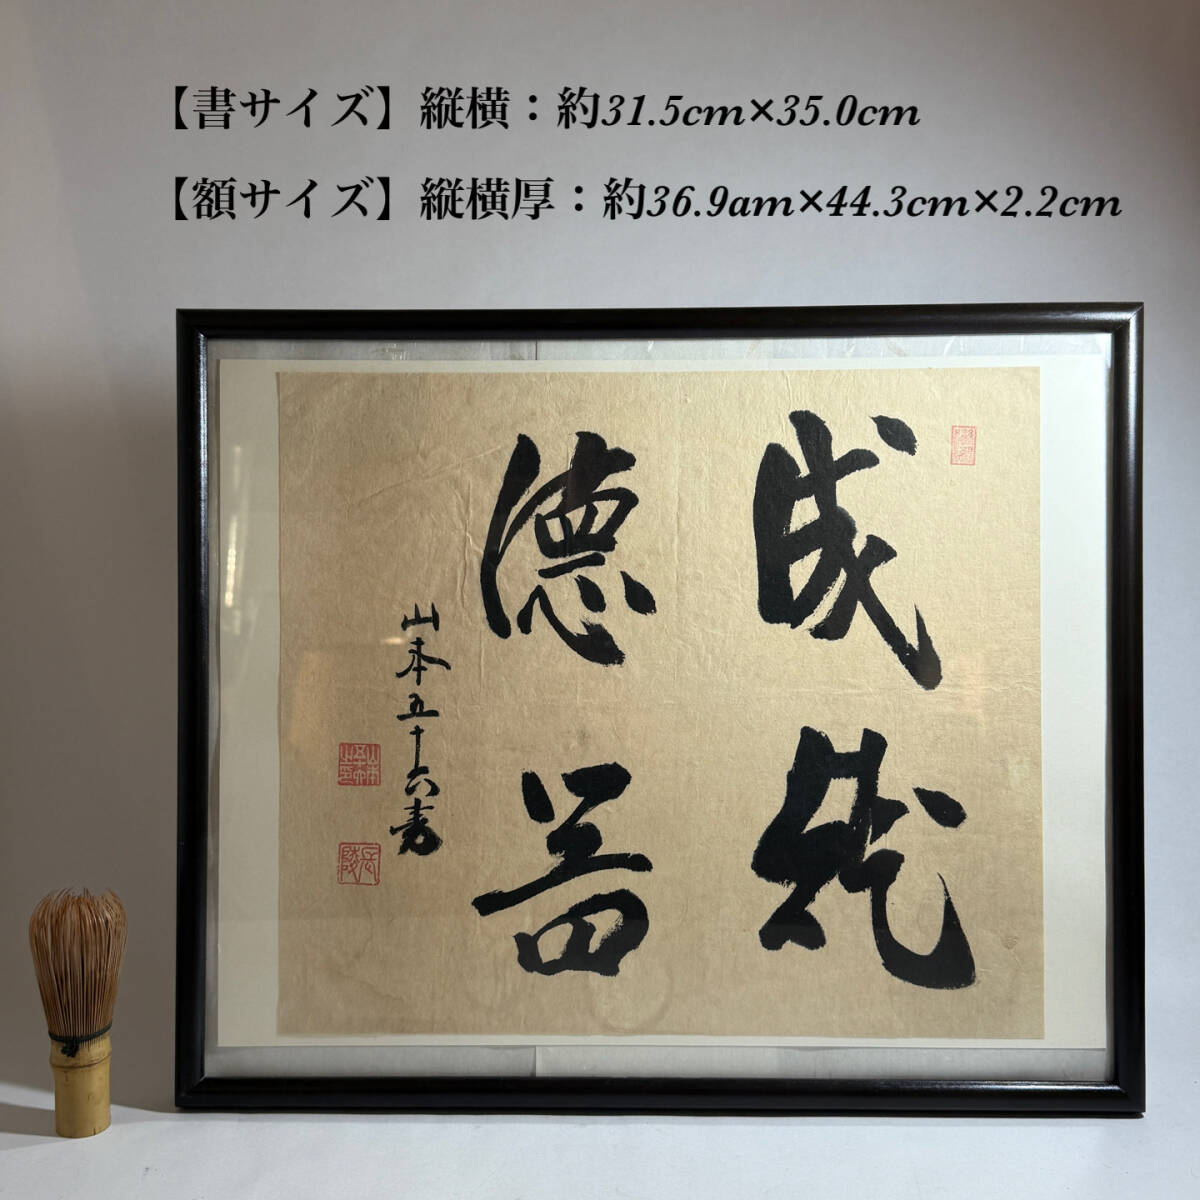 【書サイズ】縦横：約31.5cm×35.0cm
【額サイズ】縦横厚：約36.9am×44.3cm×2.2cm
成就
德器
山本五十六書